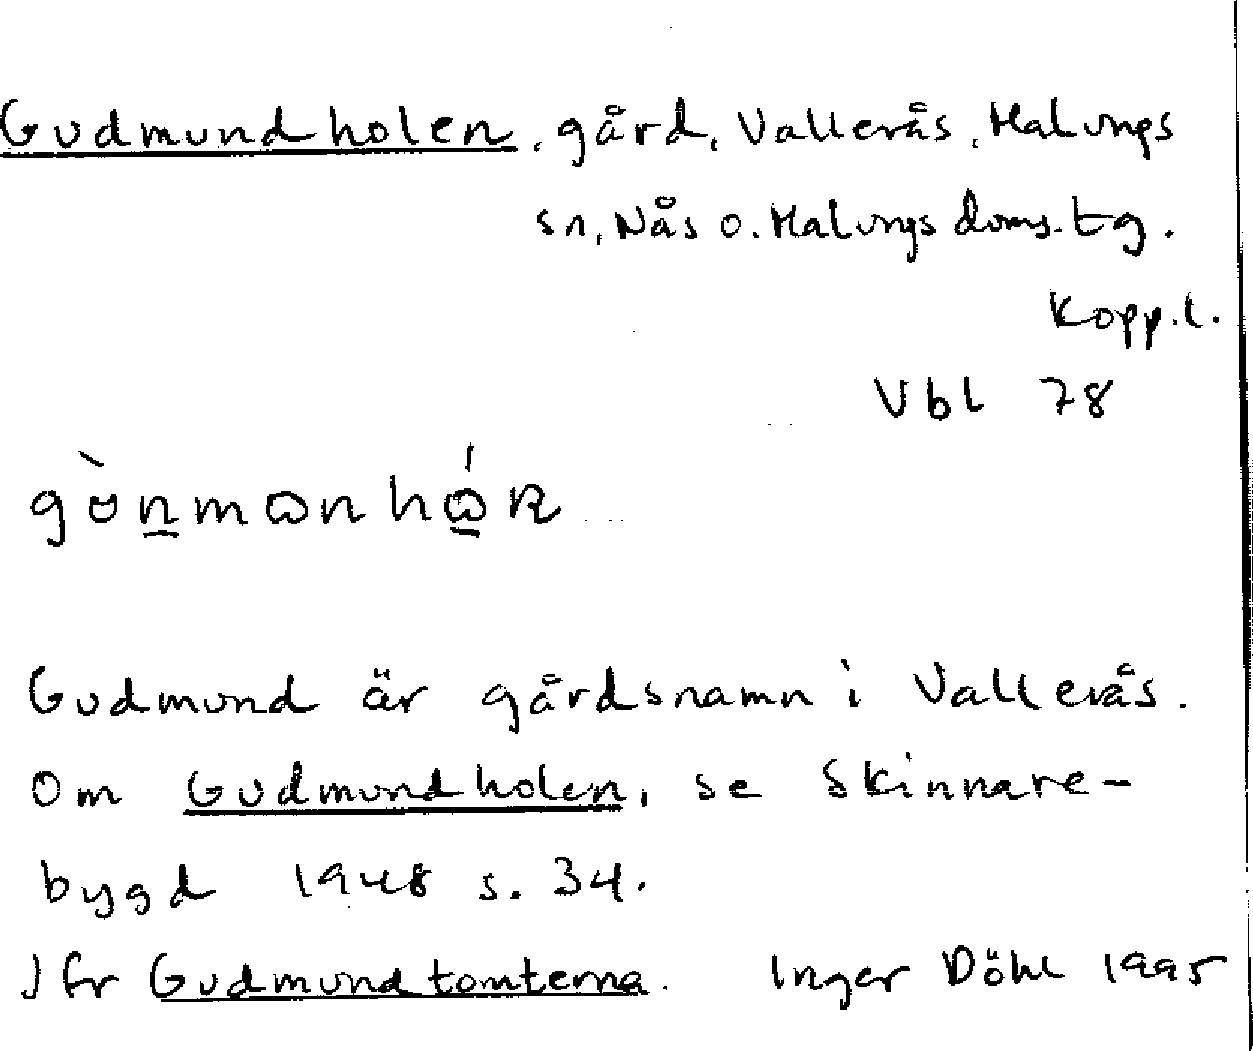 Gudmundholen, gård, Vallerås, Malungs
sn, Nås o. Malungs doms.tg.
Kopp.l.
Vbl 78
Gudmund är gårdsnamn i Vallerås.
Om Gudmundholen, se Skinnare-
bygd 1948 s. 34.
Jfr Gudmundtomterna. Inger Döhl 1995